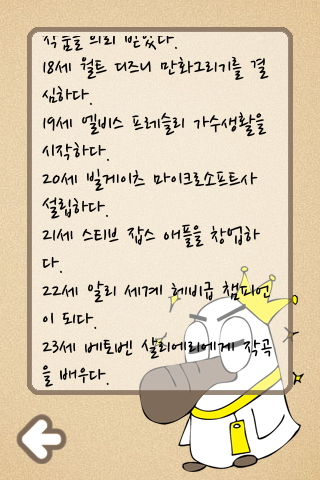 작품을 의뢰 받았다.
18세 월트 디즈니 만화그리기를 결
심하다.
19세 엘비스 프레슬리 가수생활을
시작하다.
20세 빌게이츠 마이크로소프트사
설립하다.
21세 스티브 잡스 애플을 창업하
다.
22세 알리 세계 헤비급 챔피언
이 되다.
23세 베토벤 살리에리에게 작곡
을 배우다.